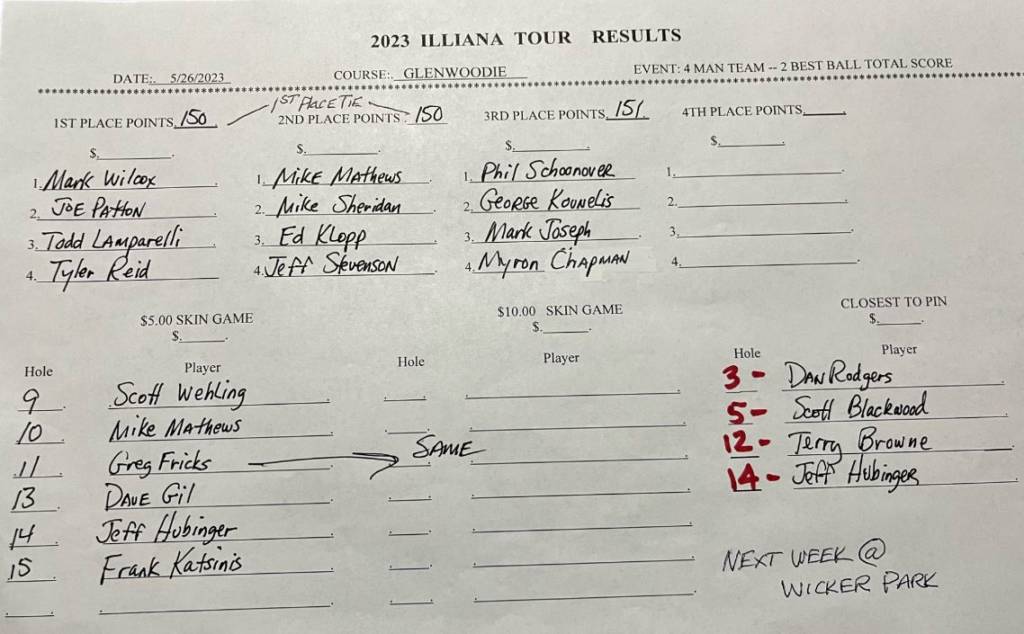 2023 ILLIANA TOUR RESULTS
DATE:. 5/26/2023 COURSE:. GLENWOODIE EVENT: 4 MAN TEAM -- 2 BEST BALL TOTAL SCORE
1ST PLACE TIE
1ST PLACE POINTS 150 2ND PLACE POINTS - 150 3RD PLACE POINTS 151 4TH PLACE POINTS
$ $ $ $
1. Mark Wilcox 1. Mike Mathews 1. Phil Schoonover 1.
2. Joe Patton 2. Mike Sheridan 2. George Kounelis 2.
3. Todd Lamparelli 3. Ed Klopp 3. Mark Joseph 3.
4. Tyler Reid 4. Jeff Stevenson 4. Myron Chapman 4.
$5.00 SKIN GAME $10.00 SKIN GAME CLOSEST TO PIN
$ $ $
Hole Player Hole Player Hole Player
9 Scott Wehling 3 - Dan Rodgers
10 Mike Mathews 5 - Scott Blackwood
11 Greg Fricks SAME 12 - Terry Browne
13 Dave Gil 14 - Jeff Hubinger
14 Jeff Hubinger
15 Frank Katsinis
NEXT WEEK @
WICKER PARK